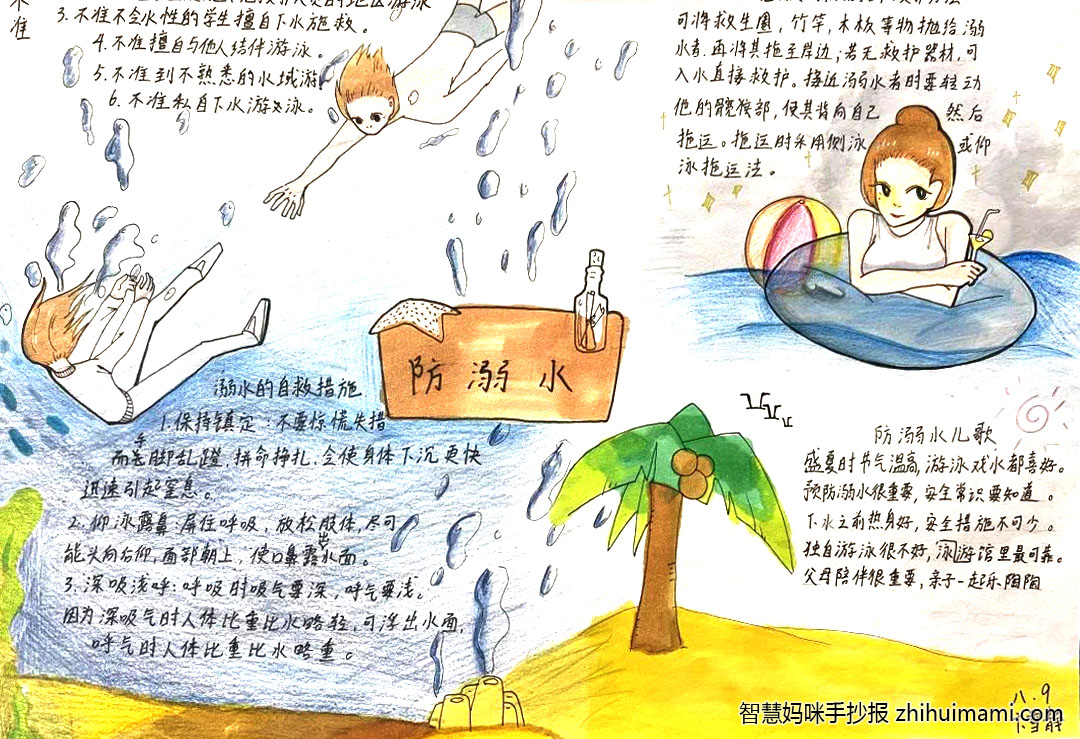 不
准
3.不准不会水性的学生擅自下水施救。
4.不准擅自与他人结伴游泳。
5.不准到不熟悉的水域游
6.不准私自下水游泳。
可将救生圈,竹竿,木板等物抛给溺
水者.再将其拖至岸边;若无救护器材,可
入水直接救护。接近溺水者时要转动
他的髋髅部,使其背向自己 然后
拖运。拖运时采用侧泳 或仰
泳拖运法。
防溺水
溺水的自救措施
1.保持镇定:不要惊慌失措
而手脚乱蹬,拼命挣扎.会使身体下沉更快
迅速引起窒息。
2.仰泳露鼻:屏住呼吸,放松肢体,尽可
能头向后仰,面部朝上,使口鼻露出水面。
3.深吸浅呼:呼吸时吸气要深,呼气要浅。
因为深吸气时人体比重比水略轻,可浮出水面,
呼气时人体比重比水略重。
防溺水儿歌
盛夏时节气温高,游泳戏水都喜好。
预防溺水很重要,安全常识要知道。
下水之前热身好,安全措施不可少。
独自游泳很不好,泳游馆里最可靠。
父母陪伴很重要,亲子一起乐陶陶
八.9
智慧妈咪手抄报 zhihuimami.com